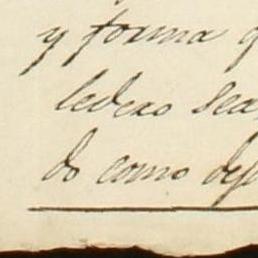 y forma q
ledero sea
do como des